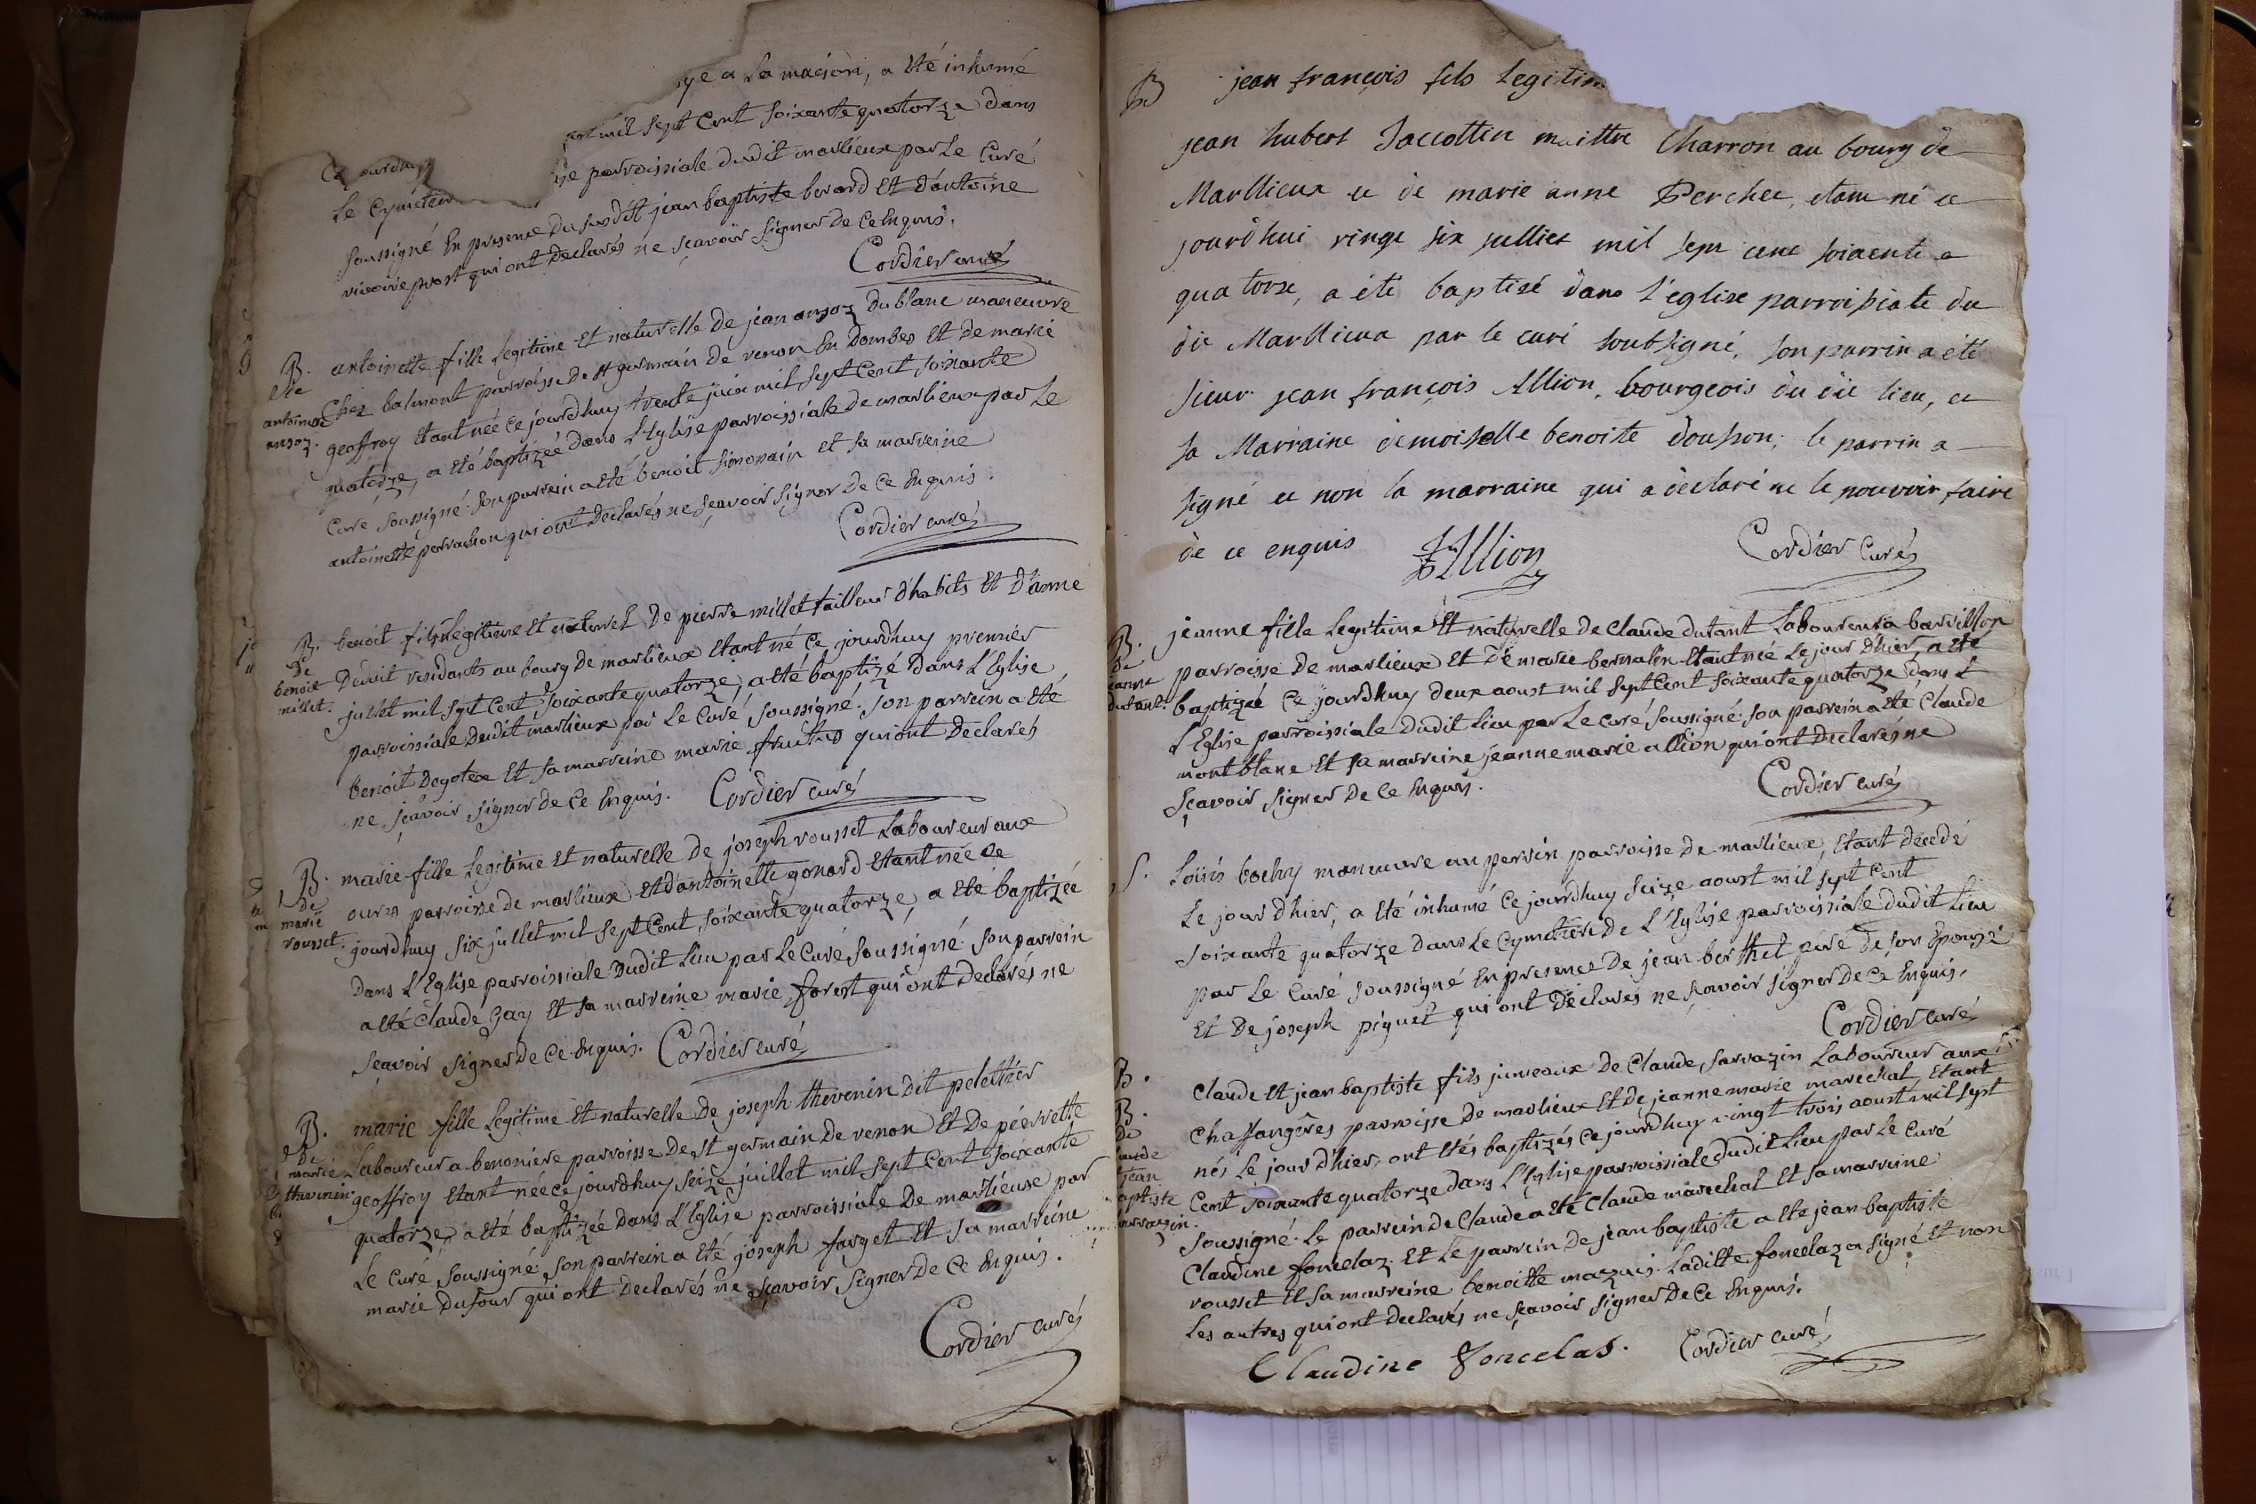 a la maison, a Eté inhumé
mil sept Cent soixante quatorze dans
Ce jourdhuy
parroissiale dudit marlieux par Le Curé
Le Cymetier
soussigné En presence du susdit jean baptiste berard Et d'antoine
qui ont Declarés ne sçavoir signer de Ce Enquis.
Cordier curé
B.
de
antoinette
anzoz.
antoinette fille Legitime Et naturelle de jean anzoz du blanc manœuvre
Chez balmont parroisse de st germain de renon En Dombes Et de marie
geoffroy Etant née Ce jourdhuy trente juin mil sept Cent soixante
quatorze, a Eté baptizée dans L'Eglise parroissiale de marlieux par Le
Curé soussigné son parrein a Eté benoit simonain et sa marreine
antoinette perrachon qui ont Declarés ne sçavoir signer De Ce Enquis.
Cordier curé
B.
de
benoit
millet.
benoit fils Legitime Et naturel De pierre millet tailleur d'habits Et D'anne
Duvit residants au bourg de marlieux Etant né Ce jourdhuy premier
juillet mil sept Cent soixante quatorze, a Eté baptizé dans L'Eglise
parroissiale Dudit marlieux par Le Curé soussigné. son parrein a Eté
benoit Degotex Et sa marreine marie fruitus qui ont Declarés
ne sçavoir signer de Ce Enquis. Cordier curé
B.
de
marie
rousset.
marie fille Legitime Et naturelle De joseph rousset Laboureur aux
oures parroisse de marlieux Et d'antoinette gonard Etant née Ce
jourdhuy six juillet mil sept Cent soixante quatorze, a Eté baptizée
dans L'Eglise parroissiale Dudit Lieu par Le Curé soussigné son parrein
a Eté Claude Gay Et sa marreine marie forest qui ont Declarés ne
sçavoir signer de Ce Enquis. Cordier curé
B.
De
marie
thevenin.
marie fille Legitime Et naturelle De joseph thevenin dit pelettier
Laboureur a benoniere parroisse De st germain de renon Et De pierrette
geoffroy Etant née Ce jourdhuy seize juillet mil sept Cent soixante
quatorze, a Eté baptizée dans L'Eglise parroissiale De marlieux par
Le Curé soussigné son parrein a Eté joseph farget Et sa marreine
marie Dufour qui ont Declarés ne sçavoir signer De Ce Enquis.
Cordier curé
B
jean françois fils Legitim
jean hubert Jaccottin maittre Charron au bourg de
Marllieux et de marie anne Perchet, etant né ce
jourd'hui vingt six julliet mil sept cent soixente
quatorze, a été baptisé dans l'église parroissiale du
dit Marllieux par le curé soubsigné, son parrin a été
sieur jean françois Allion, bourgeois du dit lieu, et
sa Marraine demoiselle benoite doufson; le parrin a
signé et non la marraine qui a déclaré ne le pouvoir faire
de ce enquis
Allion
Cordier Curé
B.
De
jeanne
dutant.
jeanne fille Legitime Et naturelle de Claude dutant Laboureur a barvillon
parroisse de marlieux Et De marie bernalin Etant née Le jour d'hier, a Eté
baptizée Ce jourdhuy deux aoust mil sept Cent soixante quatorze dans L
L'Eglise parroissiale dudit Lieu par Le Curé soussigné son parrein a Eté Claude
montblanc Et sa marreine jeanne marie allion qui ont Declarés ne
sçavoir signer de Ce Enquis.
Cordier curé
S.
Loüis bochy manœuvre au perrin parroisse de marlieux, Etant Decedé
Le jour d'hier, a Eté inhumé Ce jourdhuy seize aoust mil sept Cent
soixante quatorze dans Le Cymetier de L'Eglise parroissiale dudit Lieu
par Le Curé soussigné En presence De jean berthet pere De son Epouse
Et De joseph piguet qui ont Déclarés ne sçavoir signer de Ce Enquis.
Cordier curé
B.
B.
De
jean
Claude Et jean baptiste fils jumeaux de Claude sarrazin Laboureur aux
Chaffangères parroisse de marlieux Et de jeanne marie marechal, Etant
nés Le jour d'hier, ont Etés baptizés Ce jourdhuy vingt trois aoust mil sept
Cent soixante quatorze dans L'Eglise parroissiale dudit Lieu par Le Curé
soussigné. Le parrein de Claude a Eté Claude marechal Et sa marreine
Claudine foncelaz. Et Le parrein de jean baptiste a Eté jean baptiste
rousset Et sa marreine benoitte mazuis. Laditte foncelaz a signé Et non
Les autres qui ont Declarés ne sçavoir signer De Ce Enquis.
Claudine foncelas.
Cordier curé